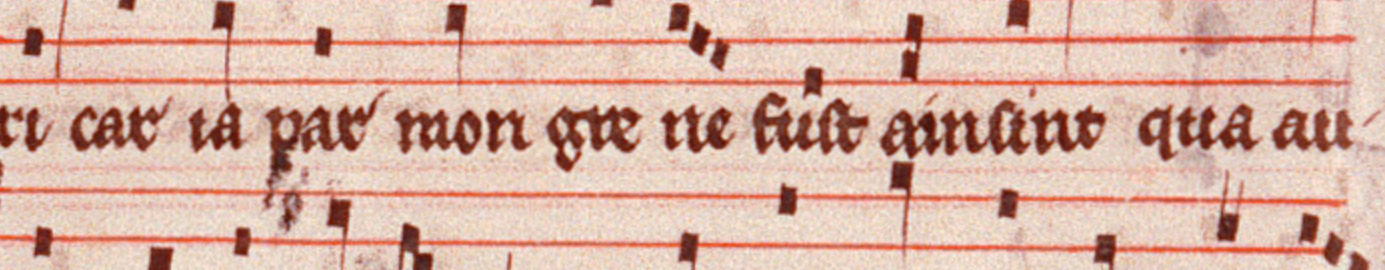 ri car ia par mon gre ne fust ainsint qua au